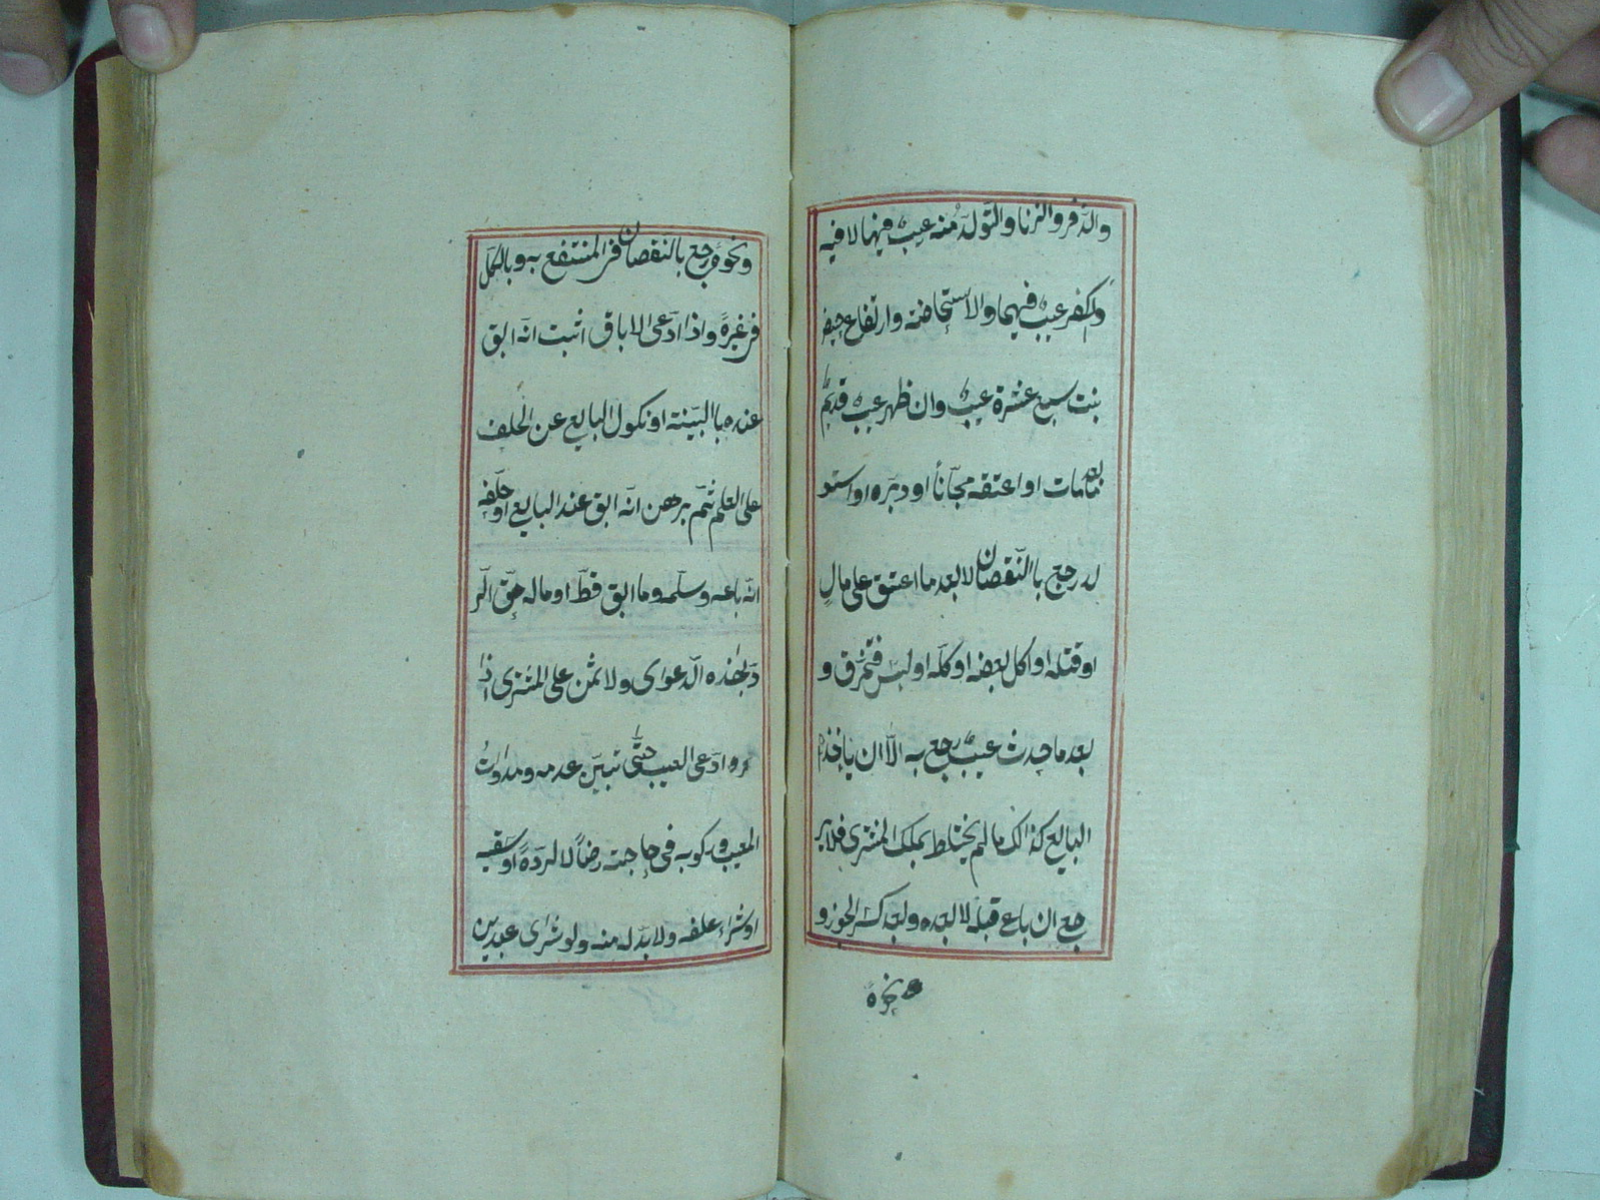 والدّفر والزنا والتّولّد منه عيبٌ فيها لا فيه
والكفر عيبٌ فيهما والاستحاضة وارتفاع حيض
بنت سبع عشرة عيبٌ وان ظهر عيبٌ قديمٌ
بعد مامات او اعتقه مجّاناً او دبّره او استو
لد رجع باالنّقصان لا بعد ما اعتق على مالٍ
او قتله او اكل بعضه او كلّه او لبس فتخرّق و
بعد ما حدث عيبٌ رجع به الّا ان ياخذه
البايع كذالك مالم يختلط بملك المشترى فلا ير
جع ان باع قبله لا بعده وبعد كسر الجوز و
نحوه
ونحوه رجع بالنّقصان فى المنتفع به وبالكلّ
فى غيره واذا ادّعى الاباق اثبت انّه ابق
عنده باالبيّنة او نكول البايع عن الحلف
على العلم ثمّ برهن انّه ابق عند البايع او حلّفه
انّه باعه وسلّمه وما ابق قطّ او ماله حقّ الر
دّ بهذه الدّعواى ولا ثمن على المشترى اذا
ادّعى العيب حتّى تبيّن عدمه ومداوات
المعيب وركوبه فى حاجته رضاً لا لردّه او سقيه
او شراء علفه ولا بدّ له منه ولو شرى عبدين